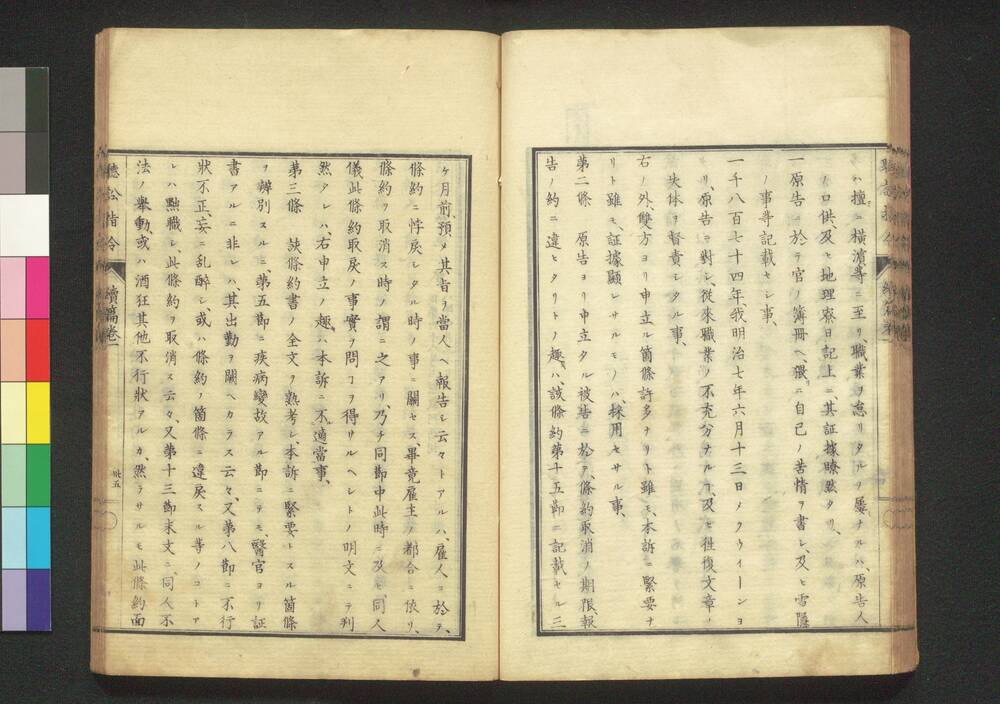 ハ擅ニ横濱等ニ至リ、職業ヲ怠リタルノ屢ナルハ、原告人
ノ口供及ヒ地理寮日記上ニ、其証據瞭然タリ、
一原告ニ於テ官ノ簿冊ヘ、猥ニ自己ノ苦情ヲ書シ、及ヒ雪隠
ノ事等記載セシ事、
一千八百七十四年、我明治七年六月十三日メクウィーンヨ
リ、原告ニ對シ、従来職業ノ不充分ナルヿ、及ヒ往復文章ノ
失体ヲ督責シタル事、
右ノ外、雙方ヨリ申立ル箇條許多ナリト雖モ、本訴ニ緊要ナ
リト雖モ、証據顯レサルモノハ、採用セサル事、
第二條　原告ヨリ申立タル被告ニ於テ、條約取消ノ期限、報
告ノ約ニ違ヒタリトノ趣ハ、該條約第十五節ニ記載セル三
ケ月前、預メ其旨ヲ當人ヘ報告シ云々トアルハ、雇人ニ於テ、
條約ニ悖戻シタル時ノ事ニ關セス、畢竟雇主ノ都合ニ依リ、
條約ヲ取消ス時ノ謂ニ之アリ、乃チ同節中此時ニ及ヒ、同人
儀此條約取戻ノ事實ヲ問フヿヲ得サルヘシトノ明文ニテ判
然タレハ、右申立ノ趣ハ本訴ニ不適當事、
第三條　該條約書ノ全文ヲ熟考シ、本訴ニ緊要トスル箇條
ヲ辨別スルニ、第五節ニ疾病變故アル節ニテモ、醫官ヨリ証
書アルニ非レハ、其出勤ヲ闕ヘカラス云々、又第八節ニ不行
狀不正、妄ニ乱醉シ、或ハ條約ノ箇條ニ違戻スル等ノコトア
レハ黜職シ、此條約ヲ取消ス云々、又第十三節末文ニ、同人不
法ノ舉動、或ハ酒狂其他不行狀アルカ、然ラサルモ此條約面
聽訟指令　續篇卷一　卅五